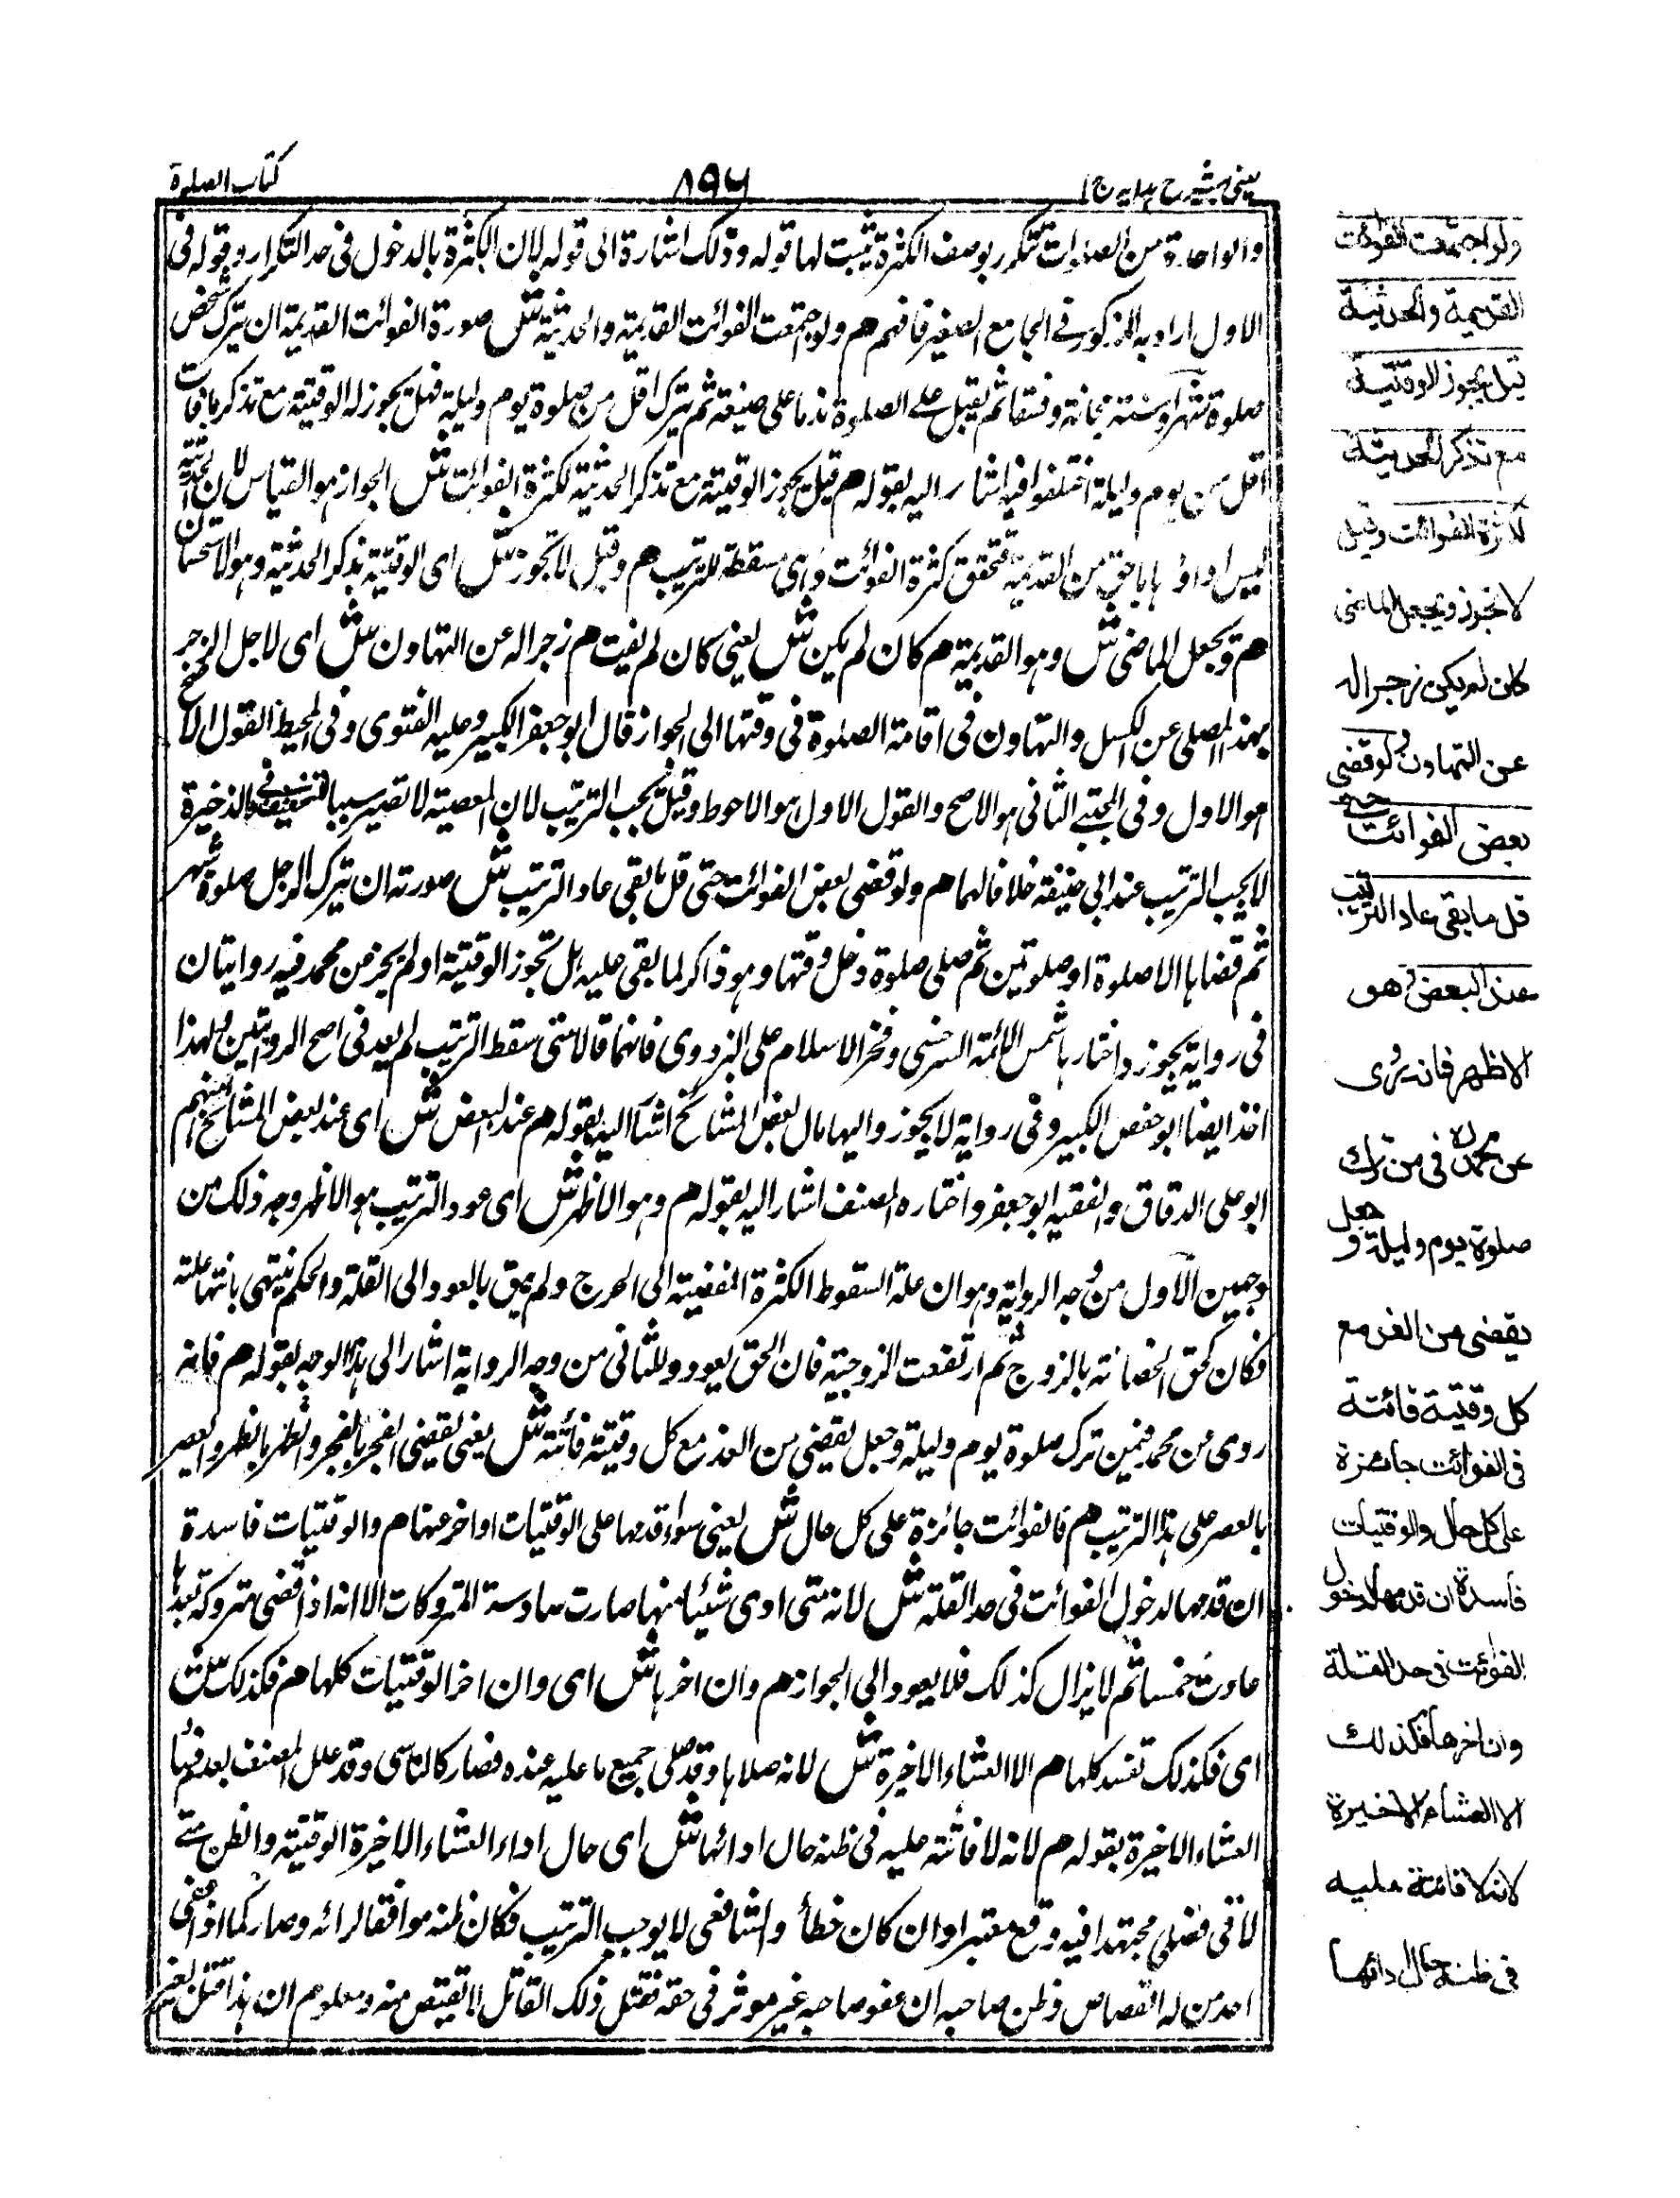 عینی شرح ہدایہ ج ۱
۸۹۶
کتاب الصلوة
والواحدة من الصلوات تتكرر بوصف الكثرة تثبت لها قوله وذلك اشارة الى قوله لان الكثرة بالدخول فى حد التكرار وقوله فى
الاول اراد به المذكور فى الجامع الصغير فافهم هم ولو اجتمعت الفوائت القديمة والحديثة ش صورة الفوائت القديمة ان يترك شخص
صلوة شهر او سنة مجانة وفسقا ثم يقبل على الصلوة ندما على صنيعه ثم يترك اقل من صلوة يوم وليلة فهل يجوز له الوقتية مع تذكر ما فات
اقل من يوم وليلة اختلفوا فيه اشار اليه بقوله هم قيل يجوز الوقتية مع تذكر الحديثة لكثرة الفوائت ش الجواز هو القياس لان الحديثة
ليس اداؤها باحق من القديمة فتحقق كثرة الفوائت وهى مسقطة للترتيب هم وقيل لا تجوز ش اى الوقتية بذكر الحديثة وهو الاستحسان
هم ويجعل الماضى ش وهو القديمة هم كان لم يكن ش يعنى كان لم يفت هم زجرا له عن التهاون ش اى لاجل الزجر
بهذا المصلى عن الكسل والتهاون فى اقامة الصلوة فى وقتها الى الجواز قال ابو جعفر الكبير وعليه الفتوى وفى المحيط القول الاصح
هو الاول وفى المجتبى الثانى هو الاصح والقول الاول هو الاحوط وقيل يجب الترتيب لان المعصية لا تصير سببا للتخفيف وفى الذخيرة
لا يجب الترتيب عند ابى حنيفة خلافا لهما هم ولو قضى بعض الفوائت حتى قل ما بقى عاد الترتيب ش صورته ان يترك الرجل صلوة شهر
ثم قضاها الا صلوة او صلوتين ثم صلى صلوة دخل وقتها وهو ذاكر لما بقى عليه هل تجوز الوقتية او لم يجز عن محمد فيه روايتان
فى رواية يجوز واختارها شمس الائمة السرخسى وفخر الاسلام على البزدوى فانهما قالا متى سقط الترتيب لم يعد فى اصح الروايتين وبهذا
اخذ ايضا ابو حفص الكبير وفى رواية لا يجوز واليها مال بعض المشائخ اشار اليه بقوله هم عند البعض ش اى عند بعض المشائخ منهم
ابو على الدقاق والفقيه ابو جعفر واختاره المصنف اشار اليه بقوله هم وهو الاظهر ش اى عود الترتيب هو الاظهر وجه ذلك من
وجهين الاول من وجه الرواية وهو ان علة السقوط الكثرة المفضية الى الحرج ولم يبق بالعود الى القلة والحكم ينتهى بانتهاء علته
فكان كحق الحضانة بالزوج ثم ارتفعت الزوجية فان الحق يعود والثانى من وجه الرواية اشار الى هذا الوجه بقوله هم فانه
روى عن محمد فيمن ترك صلوة يوم وليلة وجعل يقضى من الغد مع كل وقتية فائتة ش يعنى يقضى الفجر بالفجر والظهر بالظهر والعصر
بالعصر على هذا الترتيب هم فالفوائت جائزة على كل حال ش يعنى سواء قدمها على الوقتيات او اخر عنها هم والوقتيات فاسدة
ان قدمها لدخول الفوائت فى حد القلة ش لانه متى ادى شيئا منها صارت سادسة المتروكات الا انه اذا قضى متروكة بعدها
عادت خمسا ثم لا يزال كذلك فلا يعود الى الجواز هم وان اخرها ش اى وان اخر الوقتيات كلها هم فكذلك ش
اى فكذلك تفسد كلها هم الا العشاء الاخيرة ش لانه صلاها وقد صلى جميع ما عليه عنده فصار كالناسى وقد علل المصنف بعد فى
العشاء الاخيرة بقوله هم لانه لا فائتة عليه فى ظنه حال ادائها ش اى حال اداء العشاء الاخيرة الوقتية والظن متى
لاقى فصلا مجتهدا فيه وقع معتبرا وان كان خطأ والشافعى لا يوجب الترتيب فكان ظنه موافقا لرائه وصار كما اذا عفى
احد من له القصاص وظن صاحبه ان عفو صاحبه غير موثر فى حقه فقتل ذلك القاتل لا يقتص منه ومعلوم ان هذا قتل بغير
ولو اجتمعت الفوائت
القديمة والحديثة
قيل يجوز الوقتية
مع تذكر الحديثة
لكثرة الفوائت وقيل
لا تجوز ويجعل الماضى
كان لم يكن زجرا له
عن التهاون ولو قضى
بعض الفوائت حتى
قل ما بقى عاد الترتيب
عند البعض وهو
الاظهر فانه روى
عن محمد رح فى من ترك
صلوة يوم وليلة وجعل
يقضى من الغد مع
كل وقتية فائتة
فى الفوائت جائزة
على كل حال والوقتيات
فاسدة ان قدمها لدخول
الفوائت فى حد القلة
وان اخرها فكذلك
الا العشاء الاخيرة
لانه لا فائتة عليه
فى ظنه حال ادائها